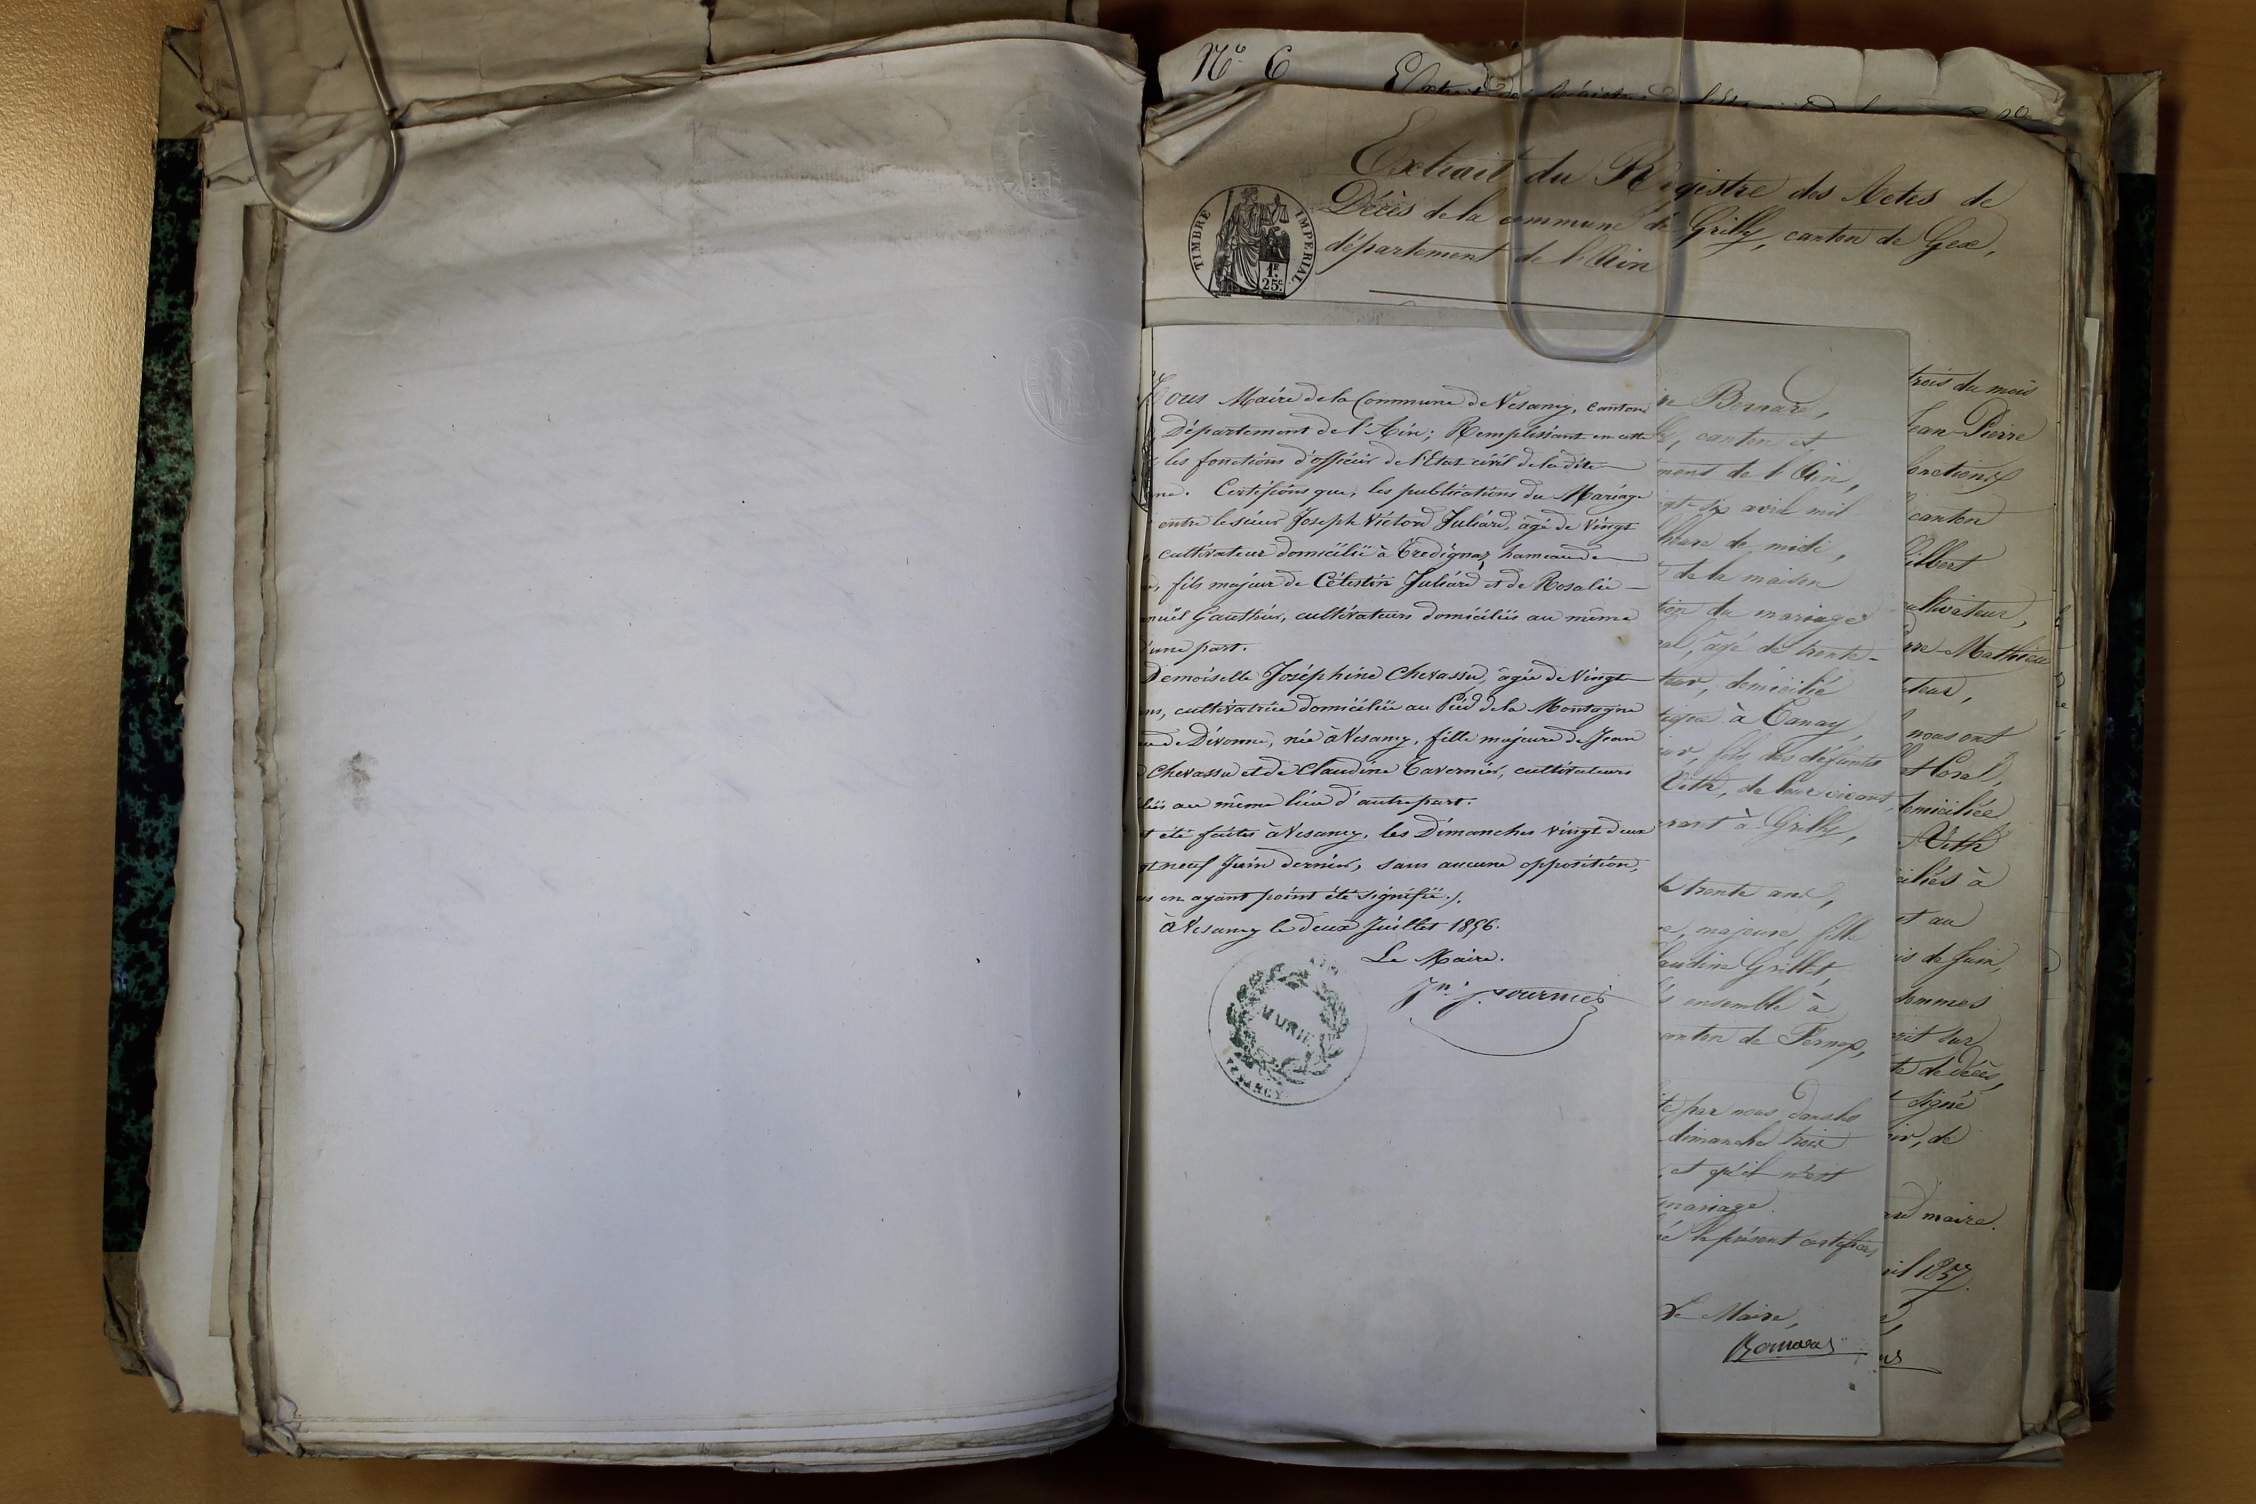 N.º 6
Extrait du Registre des Actes de
Décès de la commune de Grilly, canton de Gex,
département de l'Ain
TIMBRE IMPERIAL
1F.
25c.
Nous Maire de la Commune de Vesancy, canton
Département de l'Ain; Remplissant en cette
les fonctions d'officier de l'Etat civil de la dite
ne. Certifions que, les publications du Mariage
entre le sieur Joseph Victor Juliard, âgé de vingt
cultivateur domicilié à Tredignaz hameau de
fils majeur de Célestin Juliard et de Rosalie
Gauthier, cultivateurs domiciliés au même
d'une part.
Demoiselle Joséphine Chevassu, âgée de Vingt
ans, cultivatrice domiciliée au Pied de la Montagne
de Divonne, née à Vesancy, fille majeure de Jean
Chevassu et de Claudine Tavernier, cultivateurs
liés au même lieu d'autre part.
t été faites à Vesancy, les Dimanches vingt deux
gt neuf Juin dernier, sans aucune opposition,
en ayant point été signifié./.
à Vesancy le deux Juillet 1856.
Le Maire.
MAIRIE
VESANCY
Bernard,
canton et
ment de l'Ain,
gt-six avril mil
heure de midi,
de la maison
du mariage
âgé de trente-
domicilié
à Tanay,
fils des défunts
Vith, de leur vivant
à Grilly,
de trente ans,
majeure, fille
Claudine Grillet,
ensemble à
canton de Fernex,
par nous, dans les
dimanche trois
et qu'il n'est
mariage.
le présent certificat,
Le Maire,
Bernard
trois du mois
Jean-Pierre
fonctions
canton
Gilbert
cultivateur,
Mathieu
nous ont
domiciliée
Vith
ciliés à
et au
is de Juin,
sommes
rit sur
te de décès,
signé
de
maire.
ril 1857.